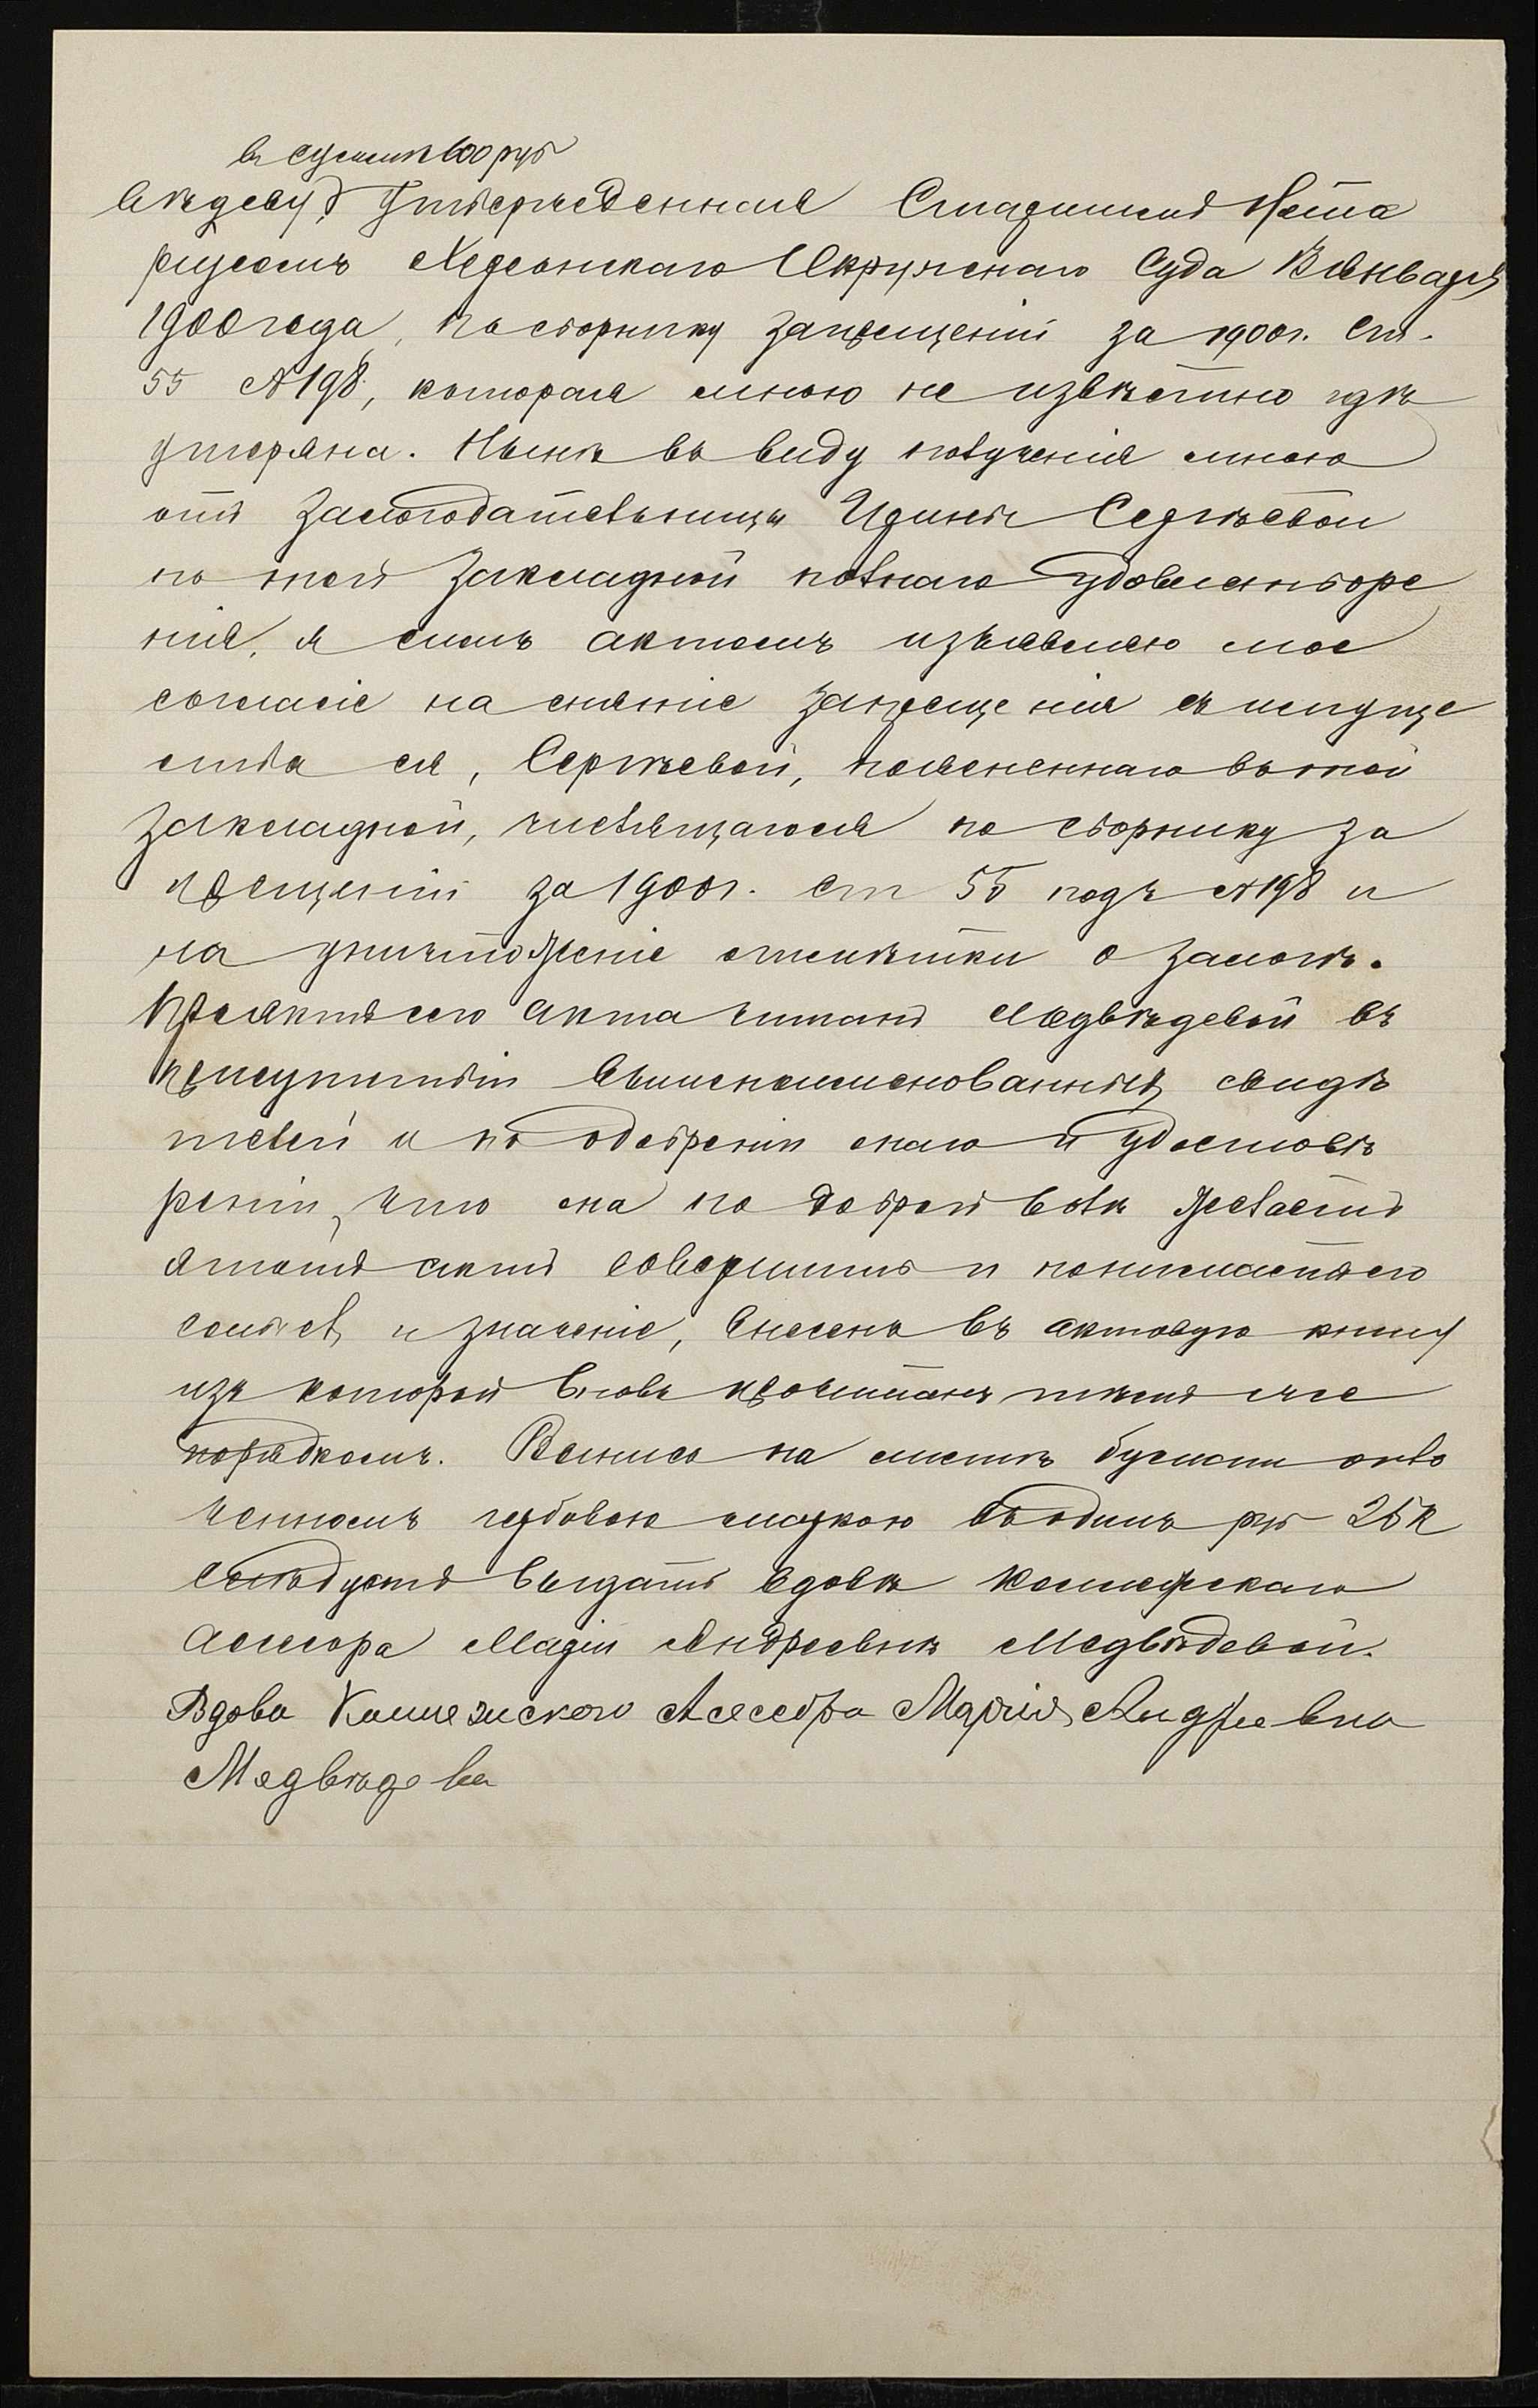 въ суммѣ 600 руб
вѣдеву, утвержденная Старшимъ Нота
ріусомъ Херсонскаго Окружнаго Суда Января
1900 года, по сборнику запрещеній за 1900 г. ст.
55 № 198, которая мною не извѣстно гдѣ
утеряна. Нынѣ въ виду полученія мною
отъ залогодательницы Ирины Сергѣевой
по той закладной полнаго удовлетворе
нія, я симъ актомъ изъявляю мое
согласіе на снятіе запрещенія съ имуще
ства ея, Сергѣевой, поясненнаго въ той
закладной, числящагося по сборнику за
прещеній за 1900 г. ст 55 подъ № 198 и
на уничтоженіе отмѣтки о залогѣ.
Проектъ сего акта читанъ Медвѣдевой въ
присутствіи вышепоименованныхъ свидѣ
телей и по одобреніи онаго и удостовѣ
реніи, что она по доброй волѣ желаетъ
этотъ актъ совершить и понимаетъ его
смыслъ и значеніе, внесенъ въ актовую книгу
изъ которой вновь прочитанъ тѣмъ же
порядкомъ. Выпись на листѣ бумаги опла
ченномъ гербовою маркою въ одинъ руб 25 к
слѣдуетъ выдать вдовѣ Коллежскаго
Асессора Маріи Андреевнѣ Медвѣдевой.
Вдова Коллежскаго Асессора Марія Андреевна
Медвѣдева